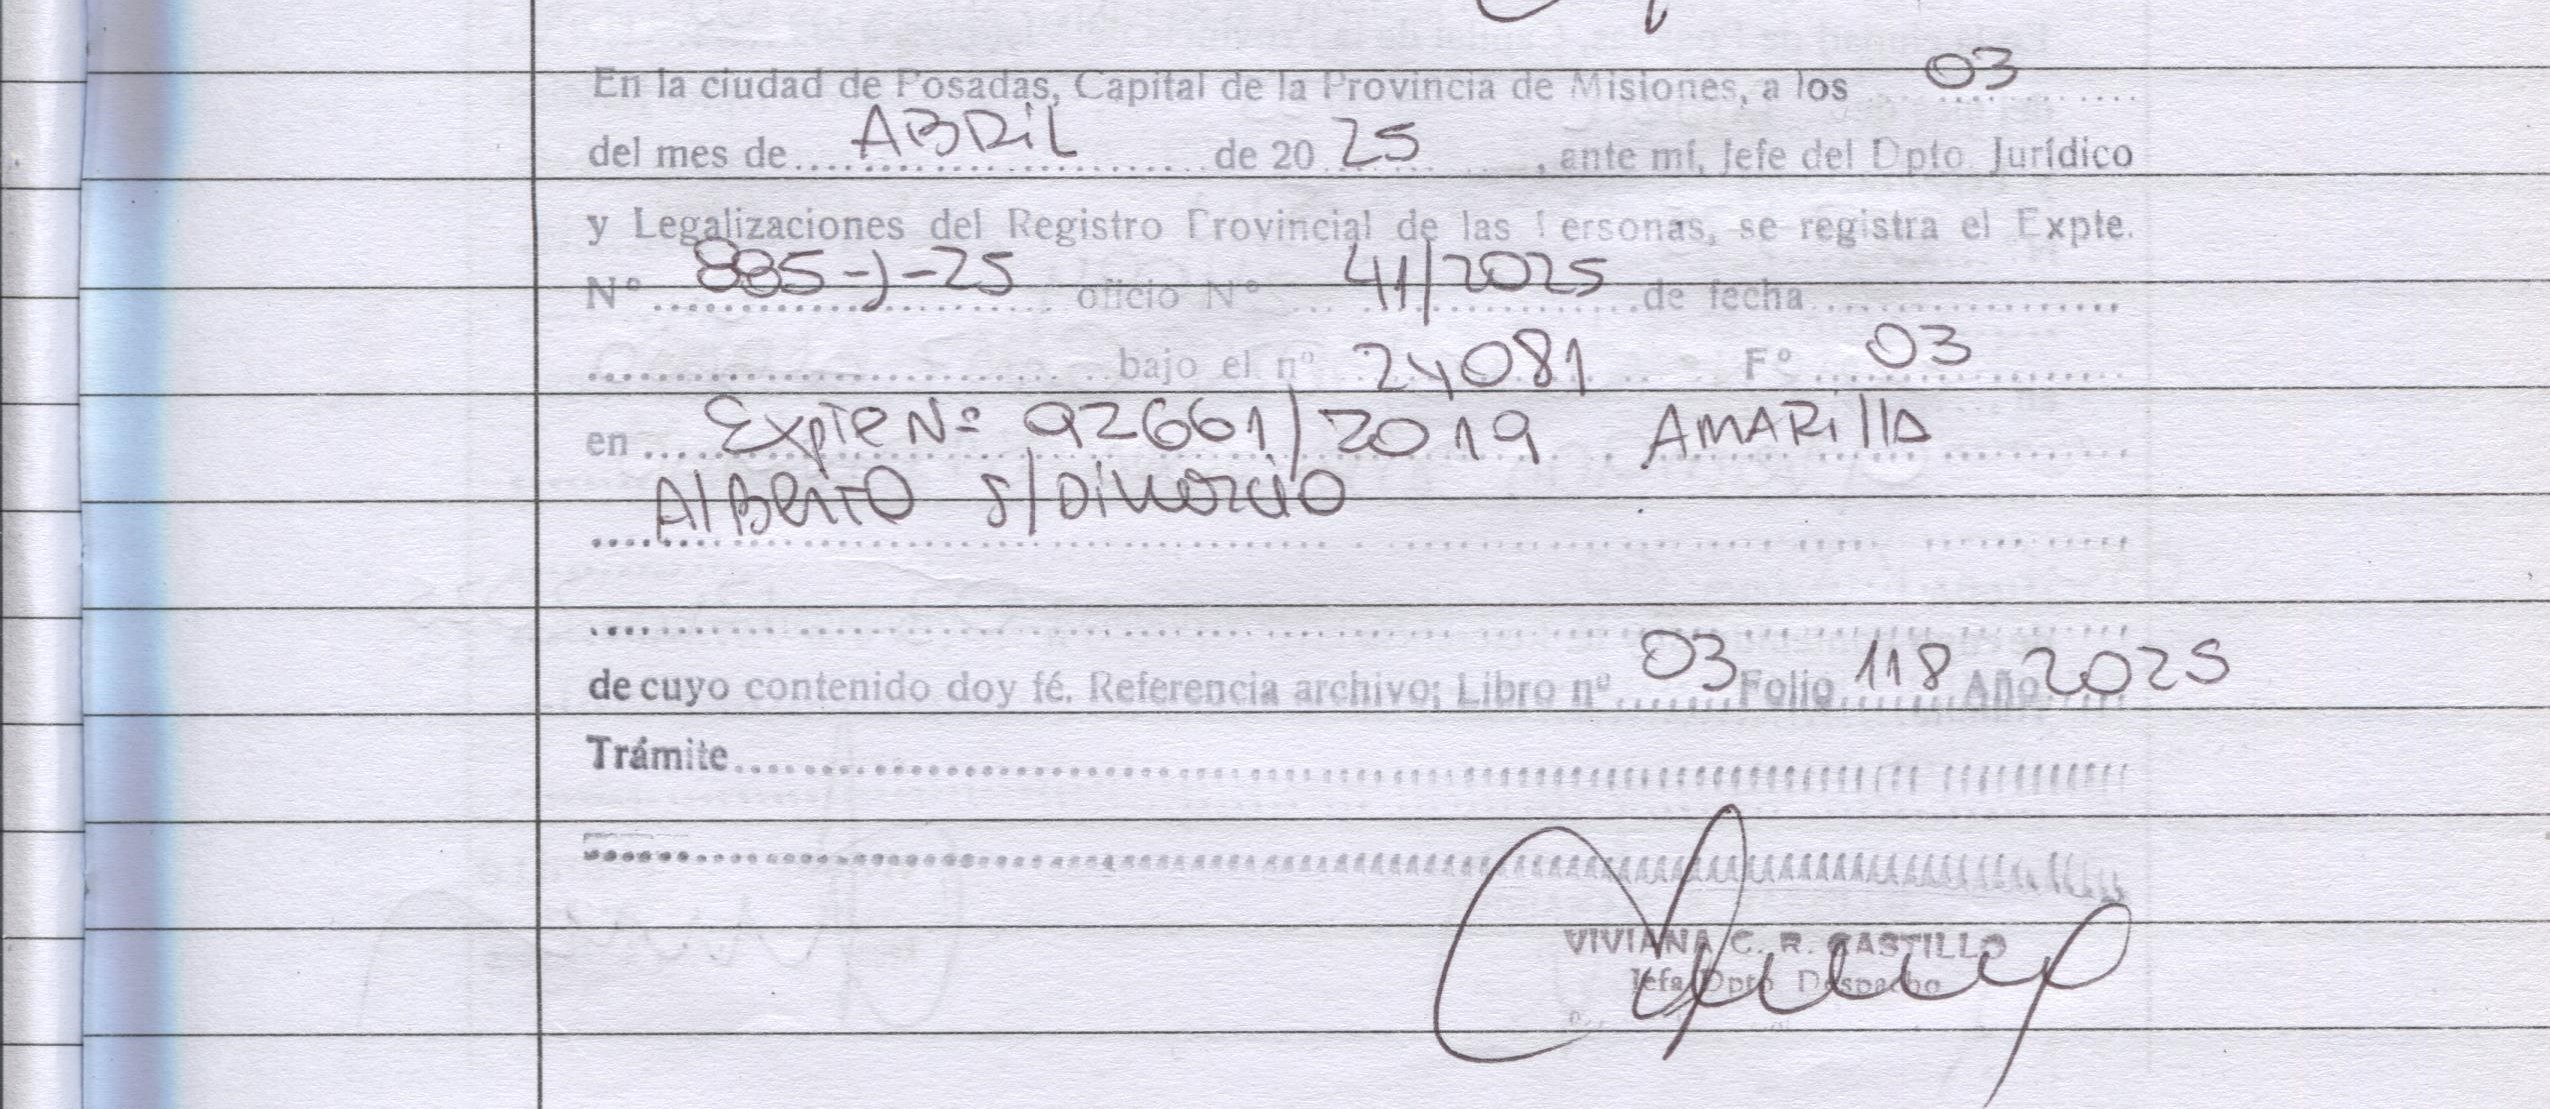 En la ciudad de Posadas, Capital de la Provincia de Misiones, a los 03
del mes de ABRIL de 20 25, ante mí, Jefe del Dpto. Jurídico
y Legalizaciones del Registro Provincial de las Personas, se registra el Expte.
Nº 885-J-25 oficio Nº 41/2025 de fecha
bajo el nº 24081 Fº 03
en Expte Nº 92661/2019 AMARILLA
Alberto s/Divorcio
de cuyo contenido doy fé. Referencia archivo; Libro nº 03 Folio 118 Año 2025
Trámite
VIVIANA C. R. CASTILLO
Jefa Dpto Despacho